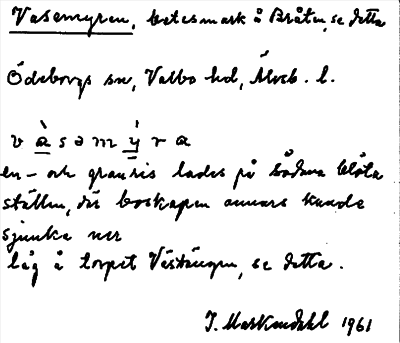 Vasemyren, betesmark å Bråten, se detta
Ödeborgs sn, Valbo hd, Älvsb. l.
v à s a m ý r a
en- och granris lades på sådana blöta
ställen, där boskapen annars kunde
sjunka ner
låg å torpet Västängen, se detta.
J. Markendahl 1961